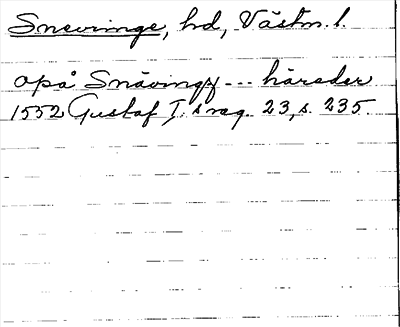 Snevringe, hd, Västm. l.
opå Snävingx --- härader
1552 Gustaf I:s reg. 23, s. 235.